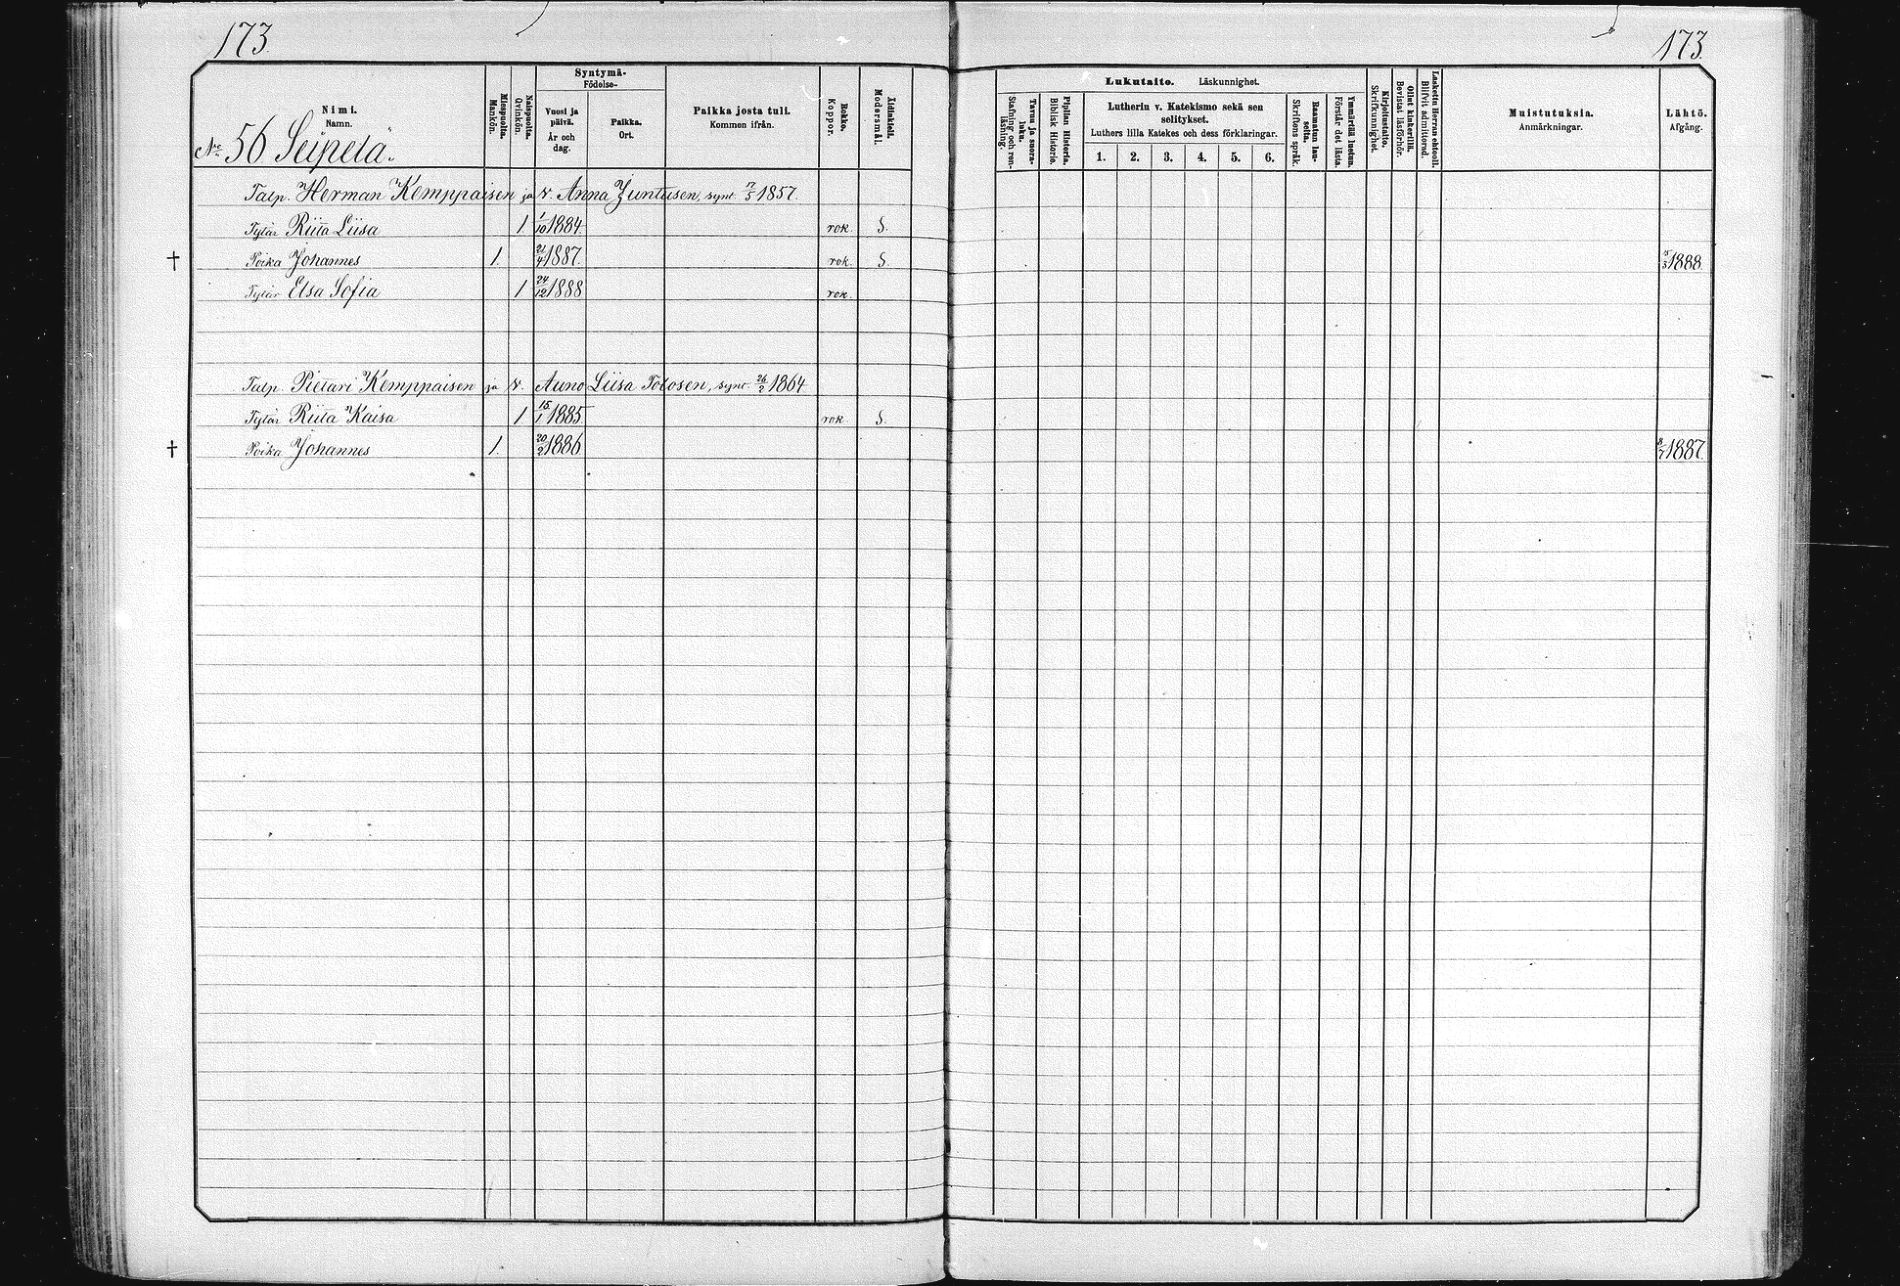 173.
173.
Nimi.
Namn.
Miespuolta.
Mankön.
Naispuolta.
Qvinkön.
Syntymä-
Födelse-
Vuosi ja päivä.
År och dag.
Paikka.
Ort.
Paikka josta tuli.
Kommen ifrån.
Rokko.
Koppor.
Äidinkieli.
Modersmål.
Lukutaito. Läskunnighet.
Tavuu ja suora-luku.
Stafning och ren-läsning.
Piplian Historia.
Biblisk Historia.
Lutherin v. Katekismo sekä sen selitykset.
Luthers lilla Katekes och dess förklaringar.
1. 2. 3. 4. 5. 6.
Raamatun lau-seita.
Skriftens språk.
Ymmärtää luetun.
Förstår det lästa.
Kirjoitustaito.
Skrifkunnighet.
Ollut kinkerillä.
Bevistat läsförhör.
Laskettu Herran ehtooll.
Blifvit admitterad.
Muistutuksia.
Anmärkningar.
Lähtö.
Afgång.
No 56 Seipelä.
Talp. Herman Kemppaisen ja v. Anna Juntusen, synt. 7/5 1857.
Tytär Riita Liisa 1 1/10 1884. rok. S.
† Poika Johannes 1. 21/4 1887. rok. S. 15/3 1888.
Tytär Elsa Sofia 1 24/12 1888 rok.
Talp. Pietari Kemppaisen ja v. Auno Liisa Tolosen, synt. 26/2 1864
Tytär Riita Kaisa 1 15/1 1885. rok S.
† Poika Johannes 1. 20/2 1886 8/7 1887.